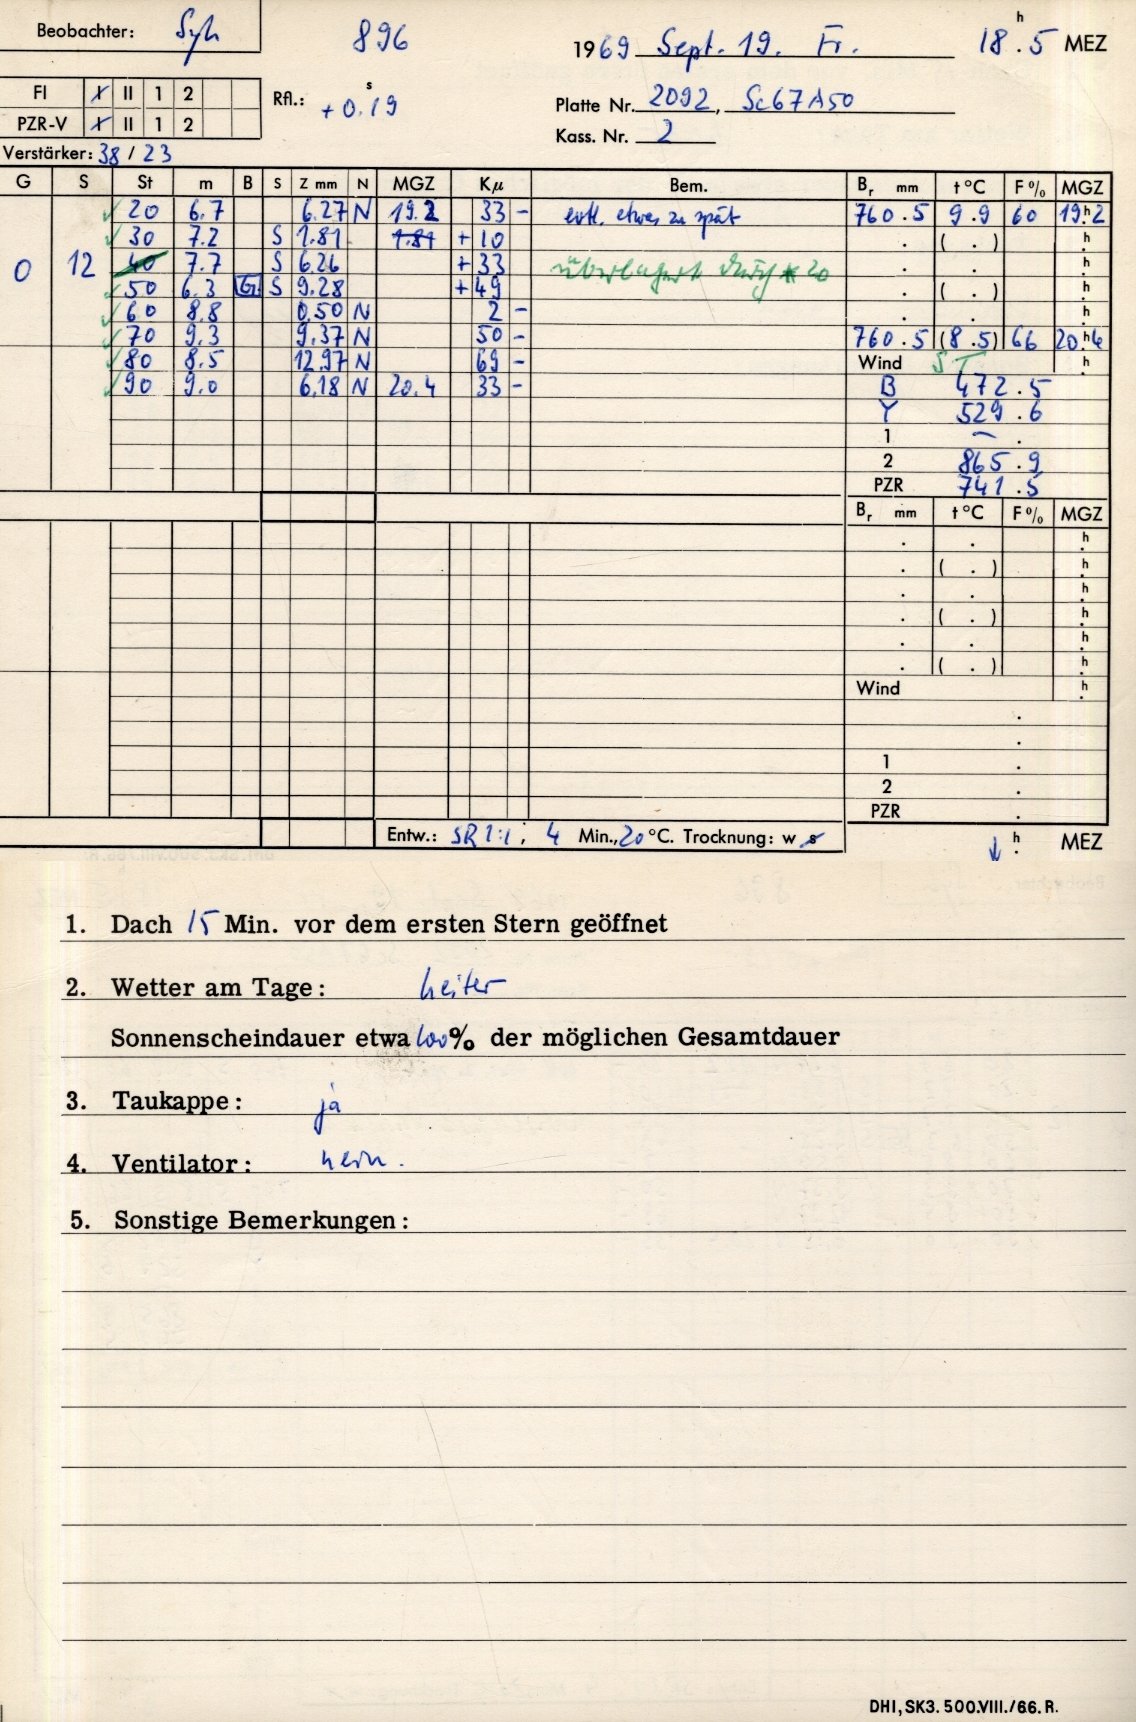 Beobachter: Syh 896 1969 Sept. 19. Fr. 18 h . 5 MEZ
FI X II 1 2
PZR-V X II 1 2
Rfl.: + 0 s . 19
Platte Nr. 2092, Sc67A50
Kass. Nr. 2
Verstärker: 38 / 23
G S St m B S Z mm N MGZ Kµ Bem. Br mm t °C F % MGZ
✓ 20 6.7 6.27 N 19.2 33 - evtl. etwas zu spät 760.5 9.9 60 19 h 2
✓ 30 7.2 S 1.81 1.81 + 10 . ( . ) h .
0 12 40 7.7 S 6.26 + 33 überlagert durch * 20 . . h .
✓ 50 6.3 G S 9.28 + 49 . ( . ) h .
✓ 60 8.8 0.50 N 2 - . . h .
✓ 70 9.3 9.37 N 50 - 760.5 (8.5) 66 20 h 4
✓ 80 8.5 12.97 N 69 - Wind ST h .
✓ 90 9.0 6.18 N 20.4 33 - B 472.5
Y 529.6
1 – .
2 865.9
PZR 741.5
Br mm t °C F % MGZ
. . h .
. ( . ) h .
. . h .
. ( . ) h .
. . h .
. ( . ) h .
Wind h .
.
.
1 .
2 .
PZR .
Entw.: SR 1:1 ; 4 Min., 20 °C. Trocknung: w s ↓ h . MEZ
1. Dach 15 Min. vor dem ersten Stern geöffnet
2. Wetter am Tage: heiter
Sonnenscheindauer etwa 100% der möglichen Gesamtdauer
3. Taukappe: ja
4. Ventilator: nein.
5. Sonstige Bemerkungen:
DHI, SK3. 500.VIII./66. R.